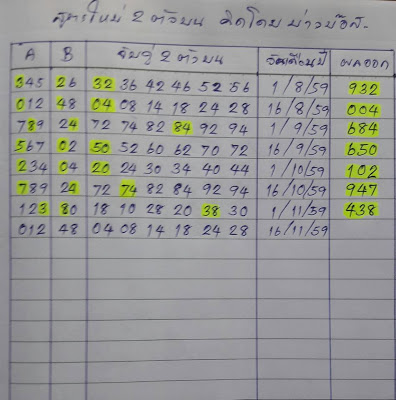 สูตรใหม่ 2 ตัวบน คิดโดย บ่าวบ๊อส.
A B จับคู่ 2 ตัวบน วันเดือนปี ผลออก
345 26 32 36 42 46 52 56 1/8/59 932
012 48 04 08 14 18 24 28 16/8/59 004
789 24 72 74 82 84 92 94 1/9/59 684
567 02 50 52 60 62 70 72 16/9/59 650
234 04 20 24 30 34 40 44 1/10/59 102
789 24 72 74 82 84 92 94 16/10/59 947
123 80 18 10 28 20 38 30 1/11/59 438
012 48 04 08 14 18 24 28 16/11/59